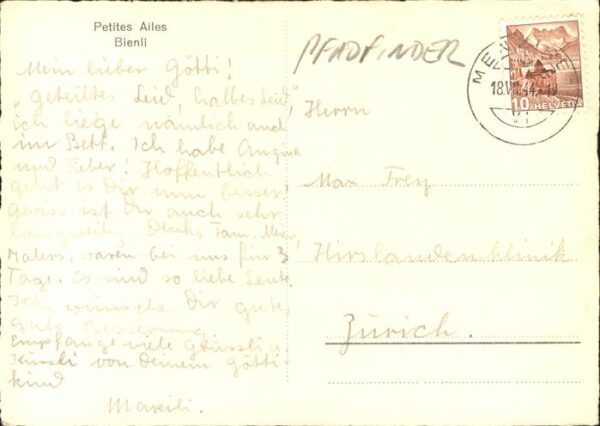 Petites Ailes
Bienli
Mein lieber Götti!
"geteiltes Leid, halbes Leid"
ich liege nämlich auch
im Bett. Ich habe Angina
und Fieber! Hoffentlich
geht es Dir nun besser,
gewiss ist Dir auch sehr
langweilig. Denk, Fam.
waren bei uns für 3
Tage. Es sind so liebe Leute.
Ich wünsche Dir gute,
gute Besserung.
Empfange viele Grüssli u.
Küssli von Deinem Götti-
kind
Mareili.
PFADFINDER
Herrn
Max Frey
Hirslandenklinik
Zürich.
18.VII.44
10 HELVETIA